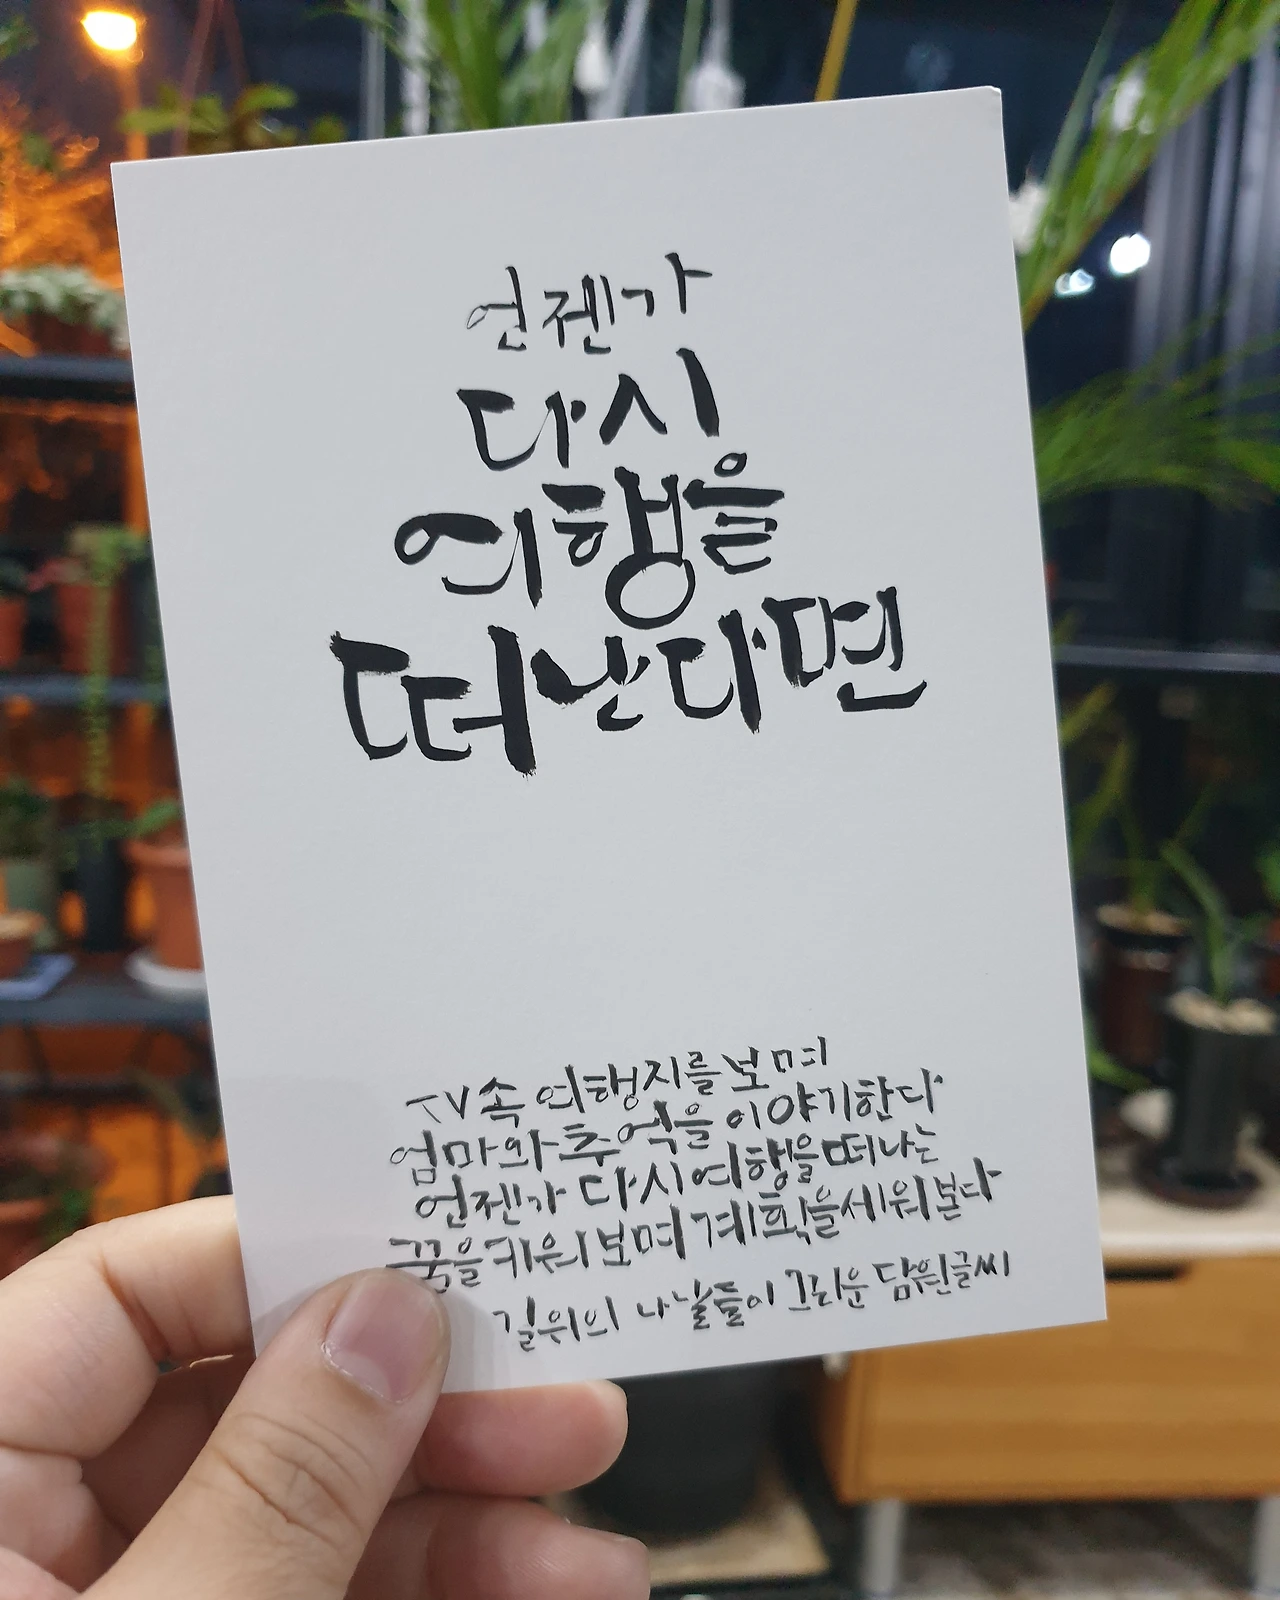 언젠가
다시
여행을
떠난다면
TV속 여행지를 보며
엄마와 추억을 이야기한다
언젠가 다시 여행을 떠나는
꿈을 키워보며 계획을 세워본다
길위의 나날들이 그리운 담원글씨